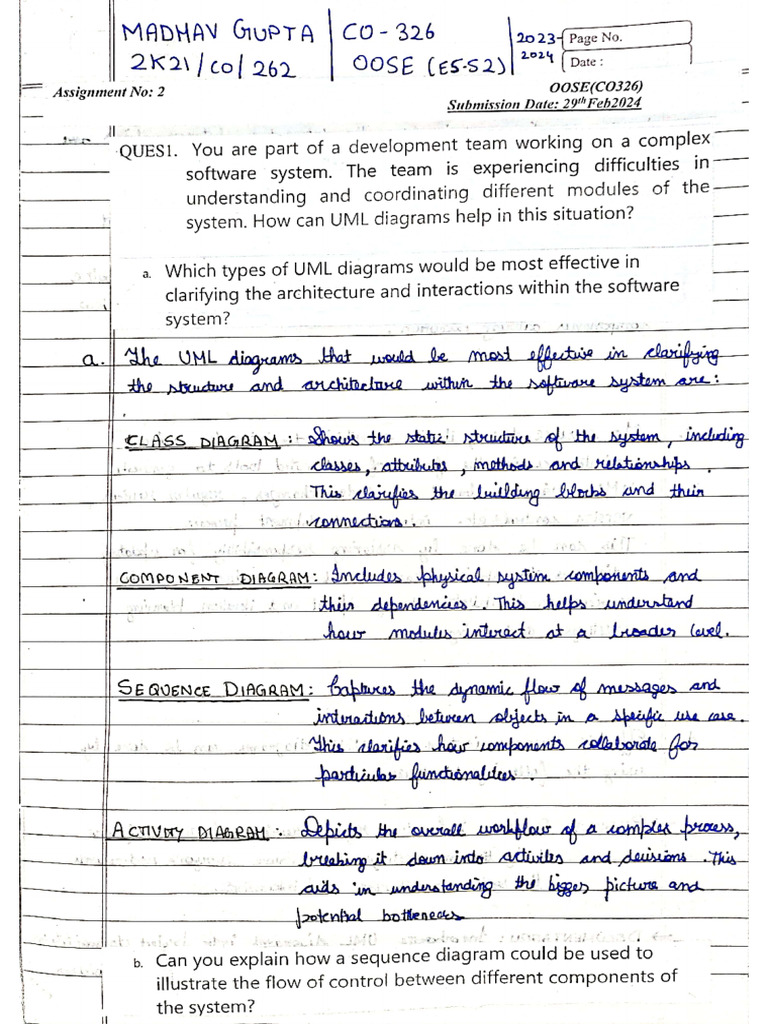 MADHAV GUPTA | CO - 326
2K21/CO/262 OOSE (E5-S2)
2023-
2024
Page No.
Date :
Assignment No: 2
OOSE(CO326)
Submission Date: 29th Feb2024
QUES1. You are part of a development team working on a complex
software system. The team is experiencing difficulties in
understanding and coordinating different modules of the
system. How can UML diagrams help in this situation?
a. Which types of UML diagrams would be most effective in
clarifying the architecture and interactions within the software
system?
a. The UML diagrams that would be most effective in clarifying
the structure and architecture within the software system are:
CLASS DIAGRAM : Shows the static structure of the system, including
classes, attributes, methods and relationships.
This clarifies the building blocks and their
connections.
COMPONENT DIAGRAM: Includes physical system components and
their dependencies. This helps understand
how modules interact at a broader level.
SEQUENCE DIAGRAM: Captures the dynamic flow of messages and
interactions between objects in a specific use case.
This clarifies how components collaborate for
particular functionalities
ACTIVITY DIAGRAM: Depicts the overall workflow of a complex process,
breaking it down into activites and decisions. This
aids in understanding the bigger picture and
potential bottlenecks
b. Can you explain how a sequence diagram could be used to
illustrate the flow of control between different components of
the system?